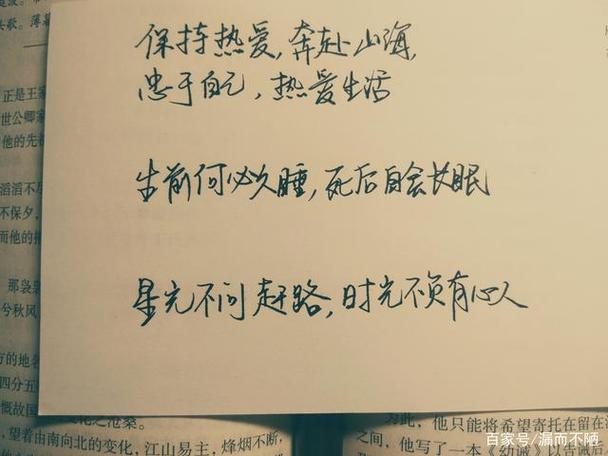 保持热爱,奔赴山海,
忠于自己,热爱生活
生前何必久睡,死后自会长眠
星光不问赶路,时光不负有心人
正是王
世公卿
他的先
滔滔不
不保夕,
而他的
那袅
兮秋风
方的地名
四分五
慨故国
之沧桑
望着由南向北的变化,江山易主,烽烟不断,
为此,他只能将希望寄托在留在
之间,他写了一本《幼诫》以告诫后
百家号/漏而不陋